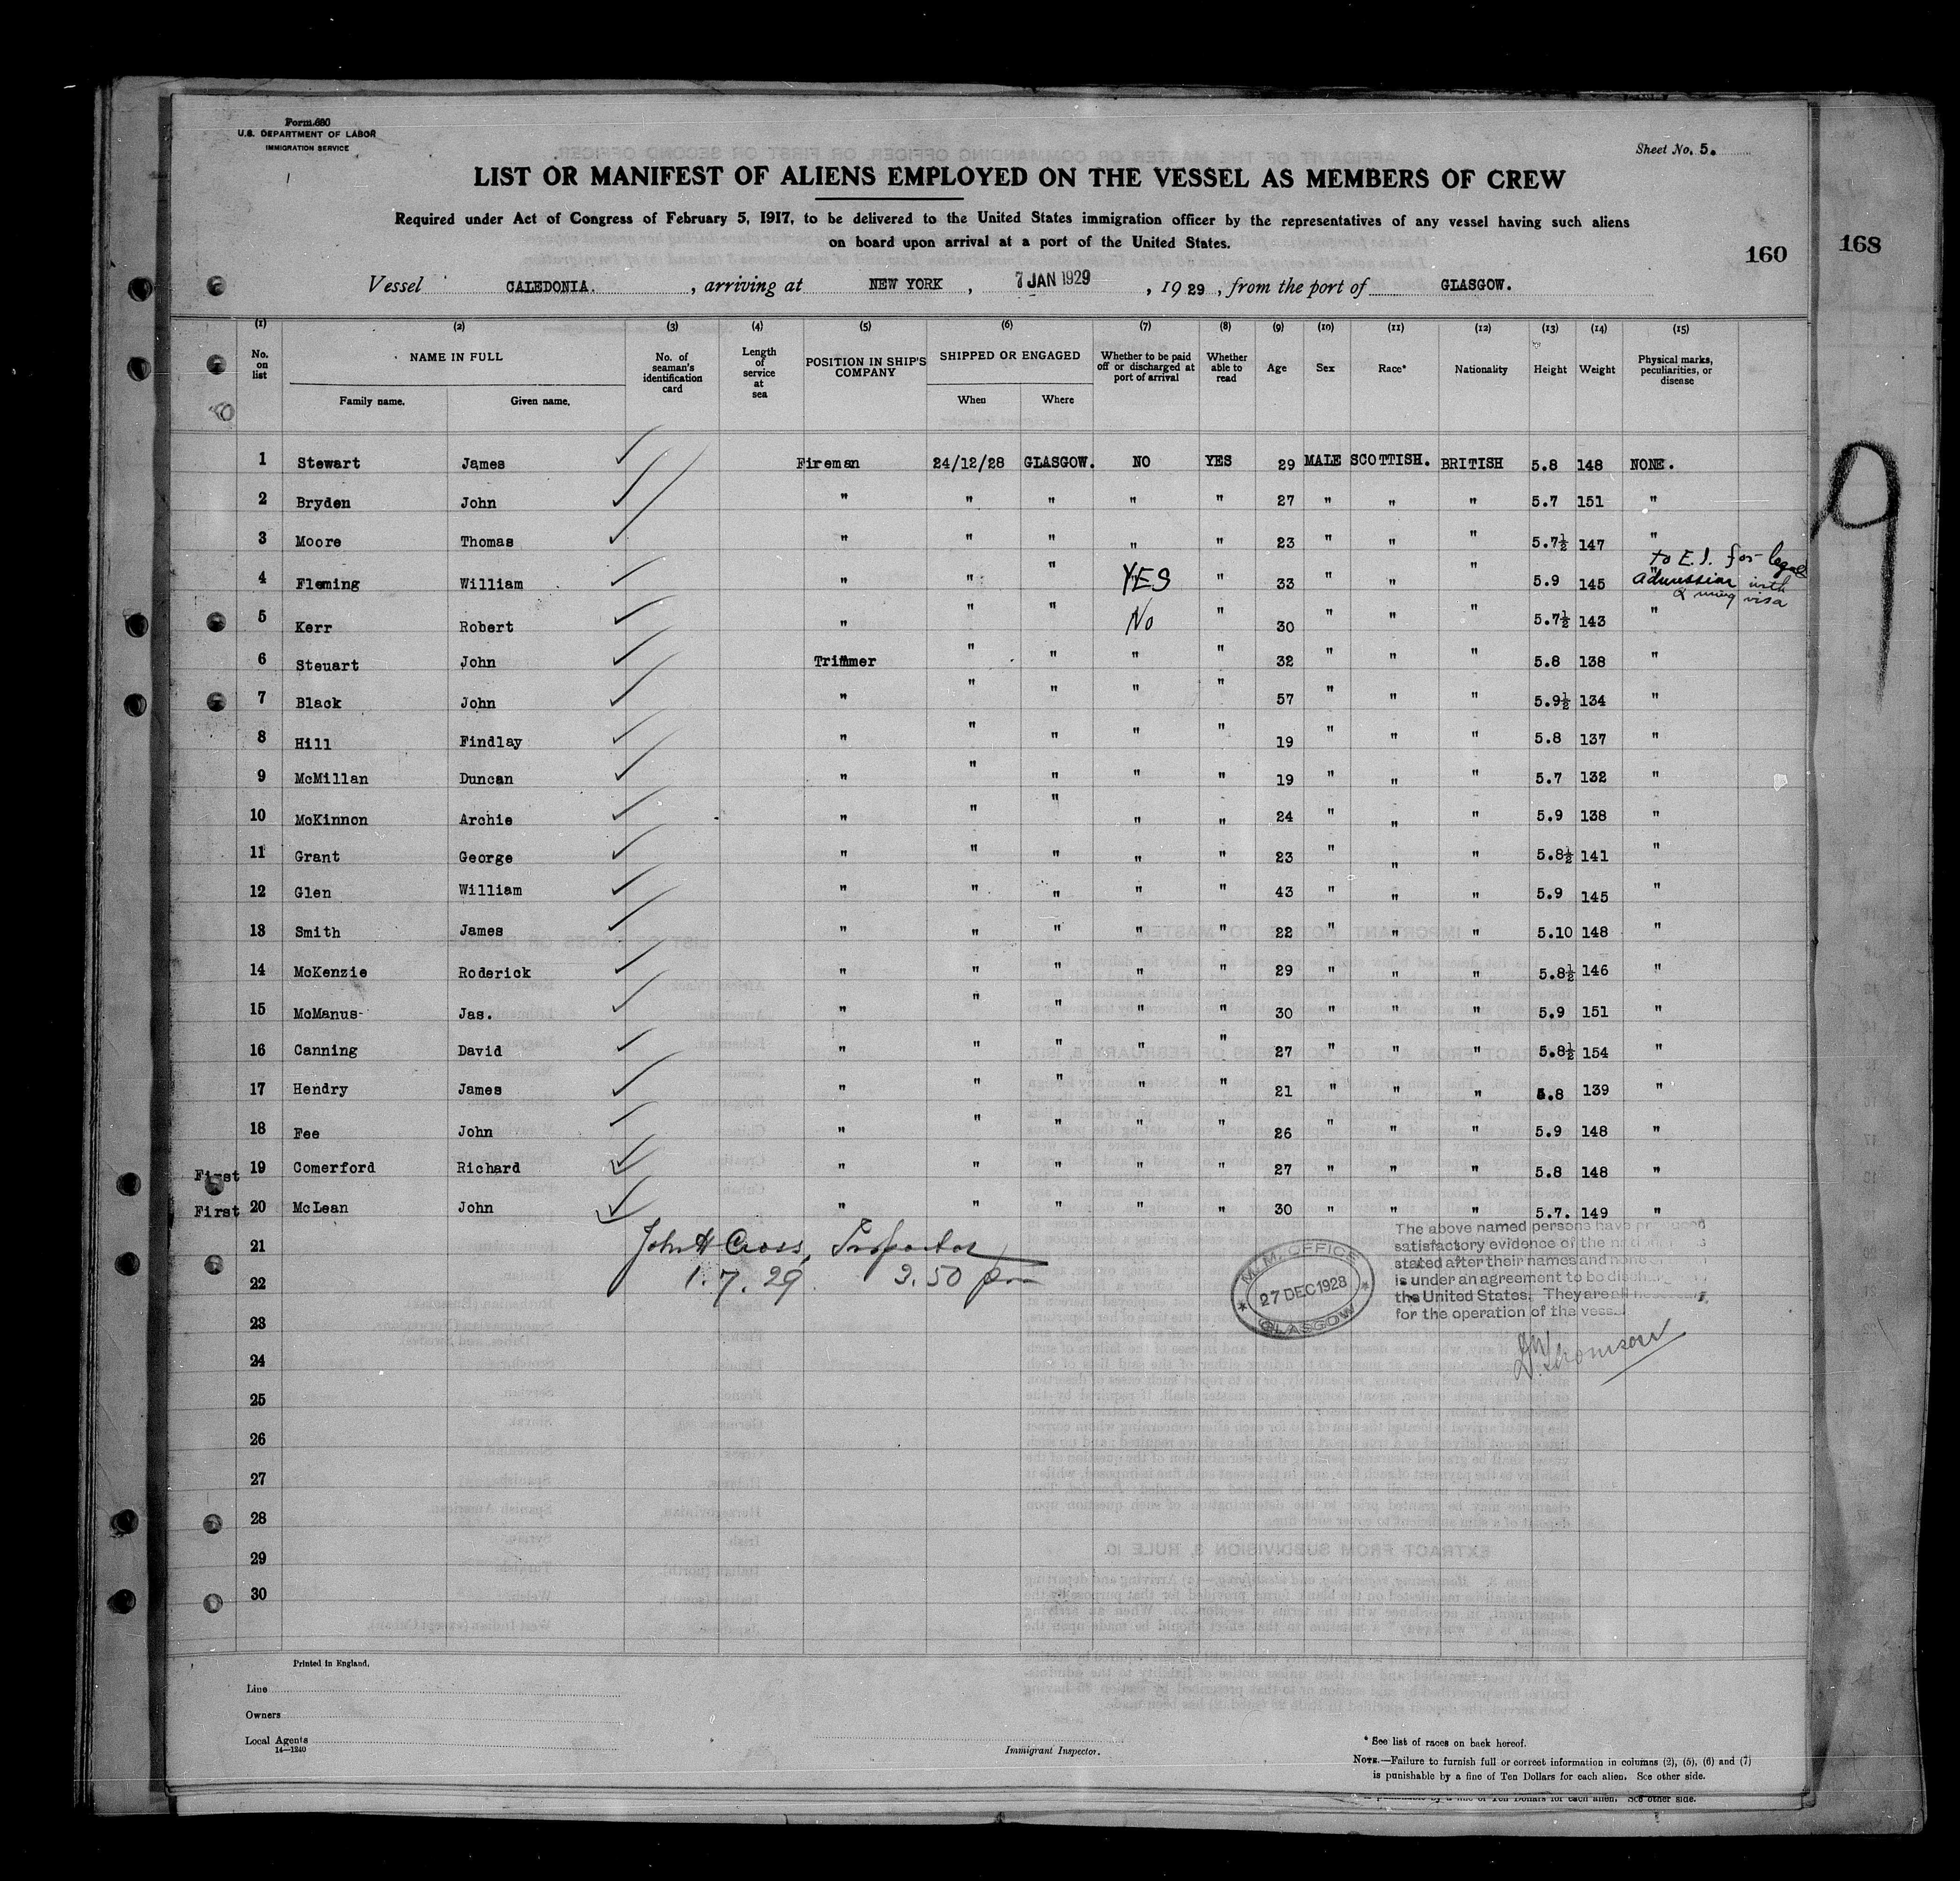 Form 680
U.S. DEPARTMENT OF LABOR
IMMIGRATION SERVICE
Sheet No. 5.
LIST OR MANIFEST OF ALIENS EMPLOYED ON THE VESSEL AS MEMBERS OF CREW
Required under Act of Congress of February 5, 1917, to be delivered to the United States immigration officer by the representatives of any vessel having such aliens
on board upon arrival at a port of the United States.
160 168
Vessel CALEDONIA. , arriving at NEW YORK , 7 JAN 1929 , 1929 , from the port of GLASGOW.
(1) (2) (3) (4) (5) (6) (7) (8) (9) (10) (11) (12) (13) (14) (15)
No. on list NAME IN FULL Family name. Given name. No. of seaman's identification card Length of service at sea POSITION IN SHIP'S COMPANY SHIPPED OR ENGAGED When Where Whether to be paid off or discharged at port of arrival Whether able to read Age Sex Race* Nationality Height Weight Physical marks, peculiarities, or disease
1 Stewart James Fireman 24/12/28 GLASGOW. NO YES 29 MALE SCOTTISH. BRITISH 5.8 148 NONE.
2 Bryden John " " " " " 27 " " " 5.7 151 "
3 Moore Thomas " " " " " 23 " " " 5.7½ 147 "
4 Fleming William " " " YES " 33 " " " 5.9 145 " to E.I. for legal admission with visa
5 Kerr Robert " " " No " 30 " " " 5.7½ 143 "
6 Steuart John Trimmer " " " " 32 " " " 5.8 138 "
7 Black John " " " " " 57 " " " 5.9½ 134 "
8 Hill Findlay " " " " " 19 " " " 5.8 137 "
9 McMillan Duncan " " " " " 19 " " " 5.7 132 "
10 McKinnon Archie " " " " " 24 " " " 5.9 138 "
11 Grant George " " " " " 23 " " " 5.8½ 141 "
12 Glen William " " " " " 43 " " " 5.9 145 "
13 Smith James " " " " " 22 " " " 5.10 148 "
14 McKenzie Roderick " " " " " 29 " " " 5.8½ 146 "
15 McManus Jas. " " " " " 30 " " " 5.9 151 "
16 Canning David " " " " " 27 " " " 5.8½ 154 "
17 Hendry James " " " " " 21 " " " 5.8 139 "
18 Fee John " " " " " 26 " " " 5.9 148 "
First 19 Comerford Richard " " " " " 27 " " " 5.8 148 "
First 20 McLean John " " " " " 30 " " " 5.7. 149 "
21
22
23
24
25
26
27
28
29
30
John H Cross, Inspector
1.7.29. 3.50 pm
M.M. OFFICE
27 DEC 1928
GLASGOW
The above named persons have produced
satisfactory evidence of the
stated after their names and none
is under an agreement to be
the United States. They are all
for the operation of the vessel
Thomson
9
Printed in England.
Line
Owners
Local Agents
14—1240
Immigrant Inspector.
* See list of races on back hereof.
NOTE.—Failure to furnish full or correct information in columns (2), (5), (6) and (7)
is punishable by a fine of Ten Dollars for each alien. See other side.
is punishable by a fine of Ten Dollars for each alien. See other side.